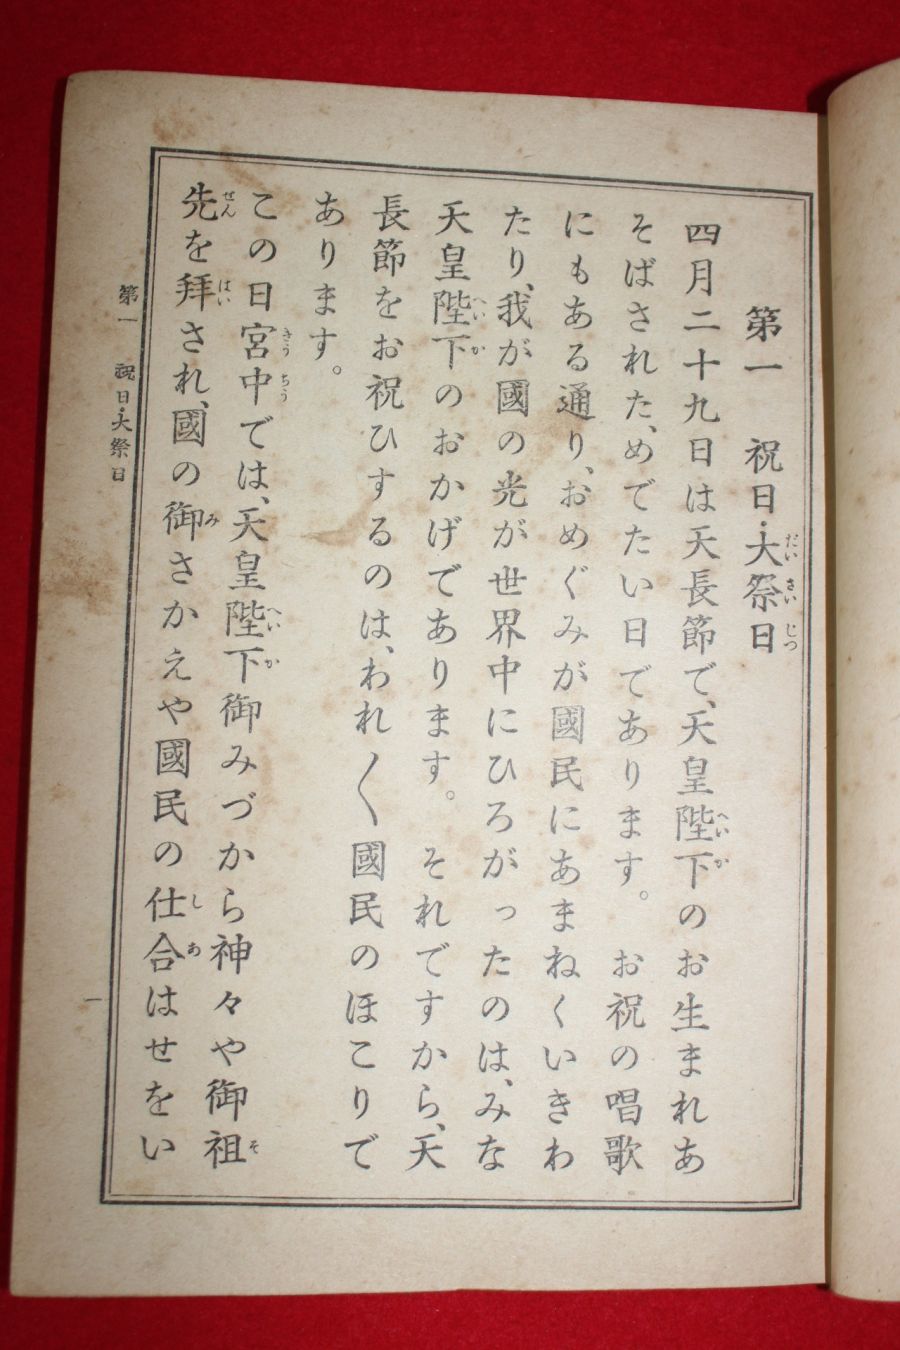 第一　祝日・大祭日
四月二十九日は天長節で、天皇陛下のお生まれあ
そばされた、めでたい日であります。お祝の唱歌
にもある通り、おめぐみが國民にあまねくいきわ
たり、我が國の光が世界中にひろがったのは、みな
天皇陛下のおかげであります。それですから、天
長節をお祝ひするのは、われ〳〵國民のほこりで
あります。
この日宮中では、天皇陛下御みづから神々や御祖
先を拜され、國の御さかえや國民の仕合はせをい
第一　祝日・大祭日
一